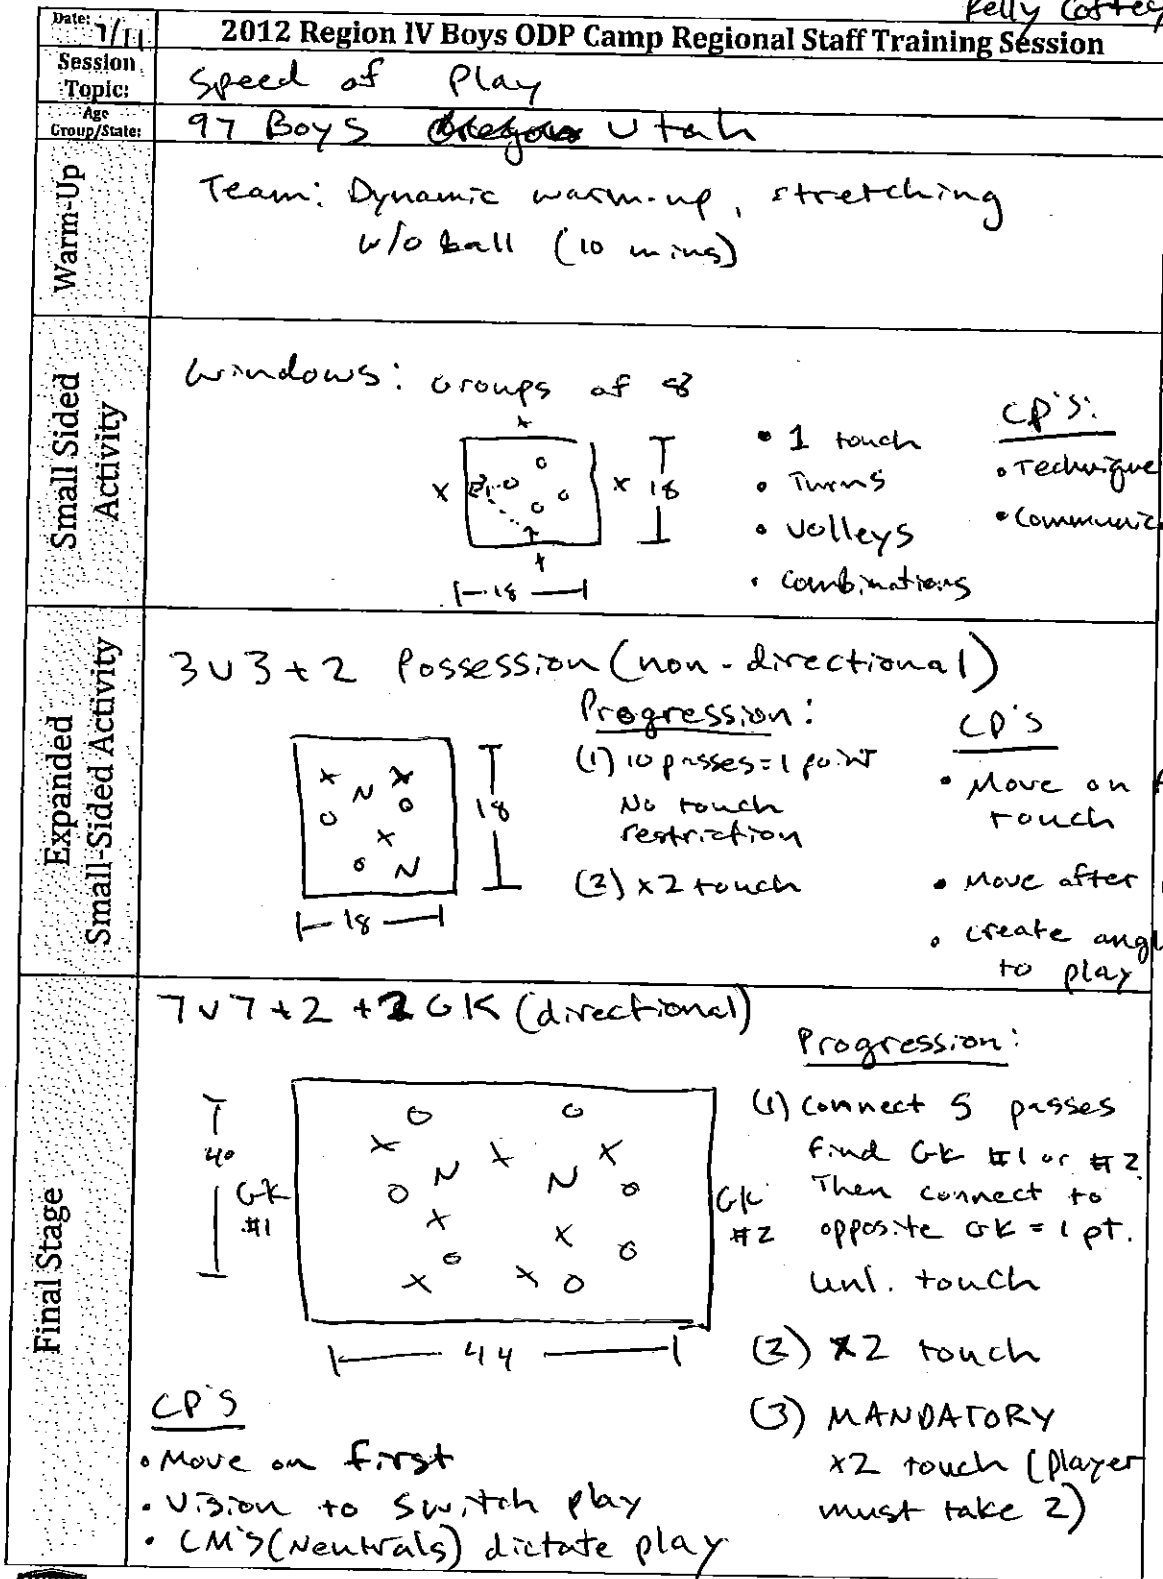 Kelly Coffey
Date: 7/11
2012 Region IV Boys ODP Camp Regional Staff Training Session
Session Topic:
Speed of Play
Age Group/State:
97 Boys Oregon Utah
Warm-Up
Team: Dynamic warm-up, stretching
w/o ball (10 mins)
Small Sided
Activity
Windows: Groups of 8
x
x o o o o x
18
x
18
• 1 touch
• Turns
• Volleys
• Combinations
CP'S:
• Technique
• Communic
Expanded
Small-Sided Activity
3v3+2 Possession (non-directional)
x N x
o o
x
o N
18
18
Progression:
(1) 10 passes=1 point
No touch
restriction
(2) x2 touch
CP'S
• Move on f
touch
• Move after
• create angl
to play
Final Stage
7v7+2 +2 GK (directional)
40
GK
#1
o o
x x x
N N
o o
x x
o o
x x o
GK
#2
44
Progression:
(1) Connect 5 passes
find GK #1 or #2
Then connect to
opposite GK = 1 pt.
unl. touch
(2) x2 touch
(3) MANDATORY
x2 touch (player
must take 2)
CP'S
• Move on first
• Vision to switch play
• CM'S (Neutrals) dictate play